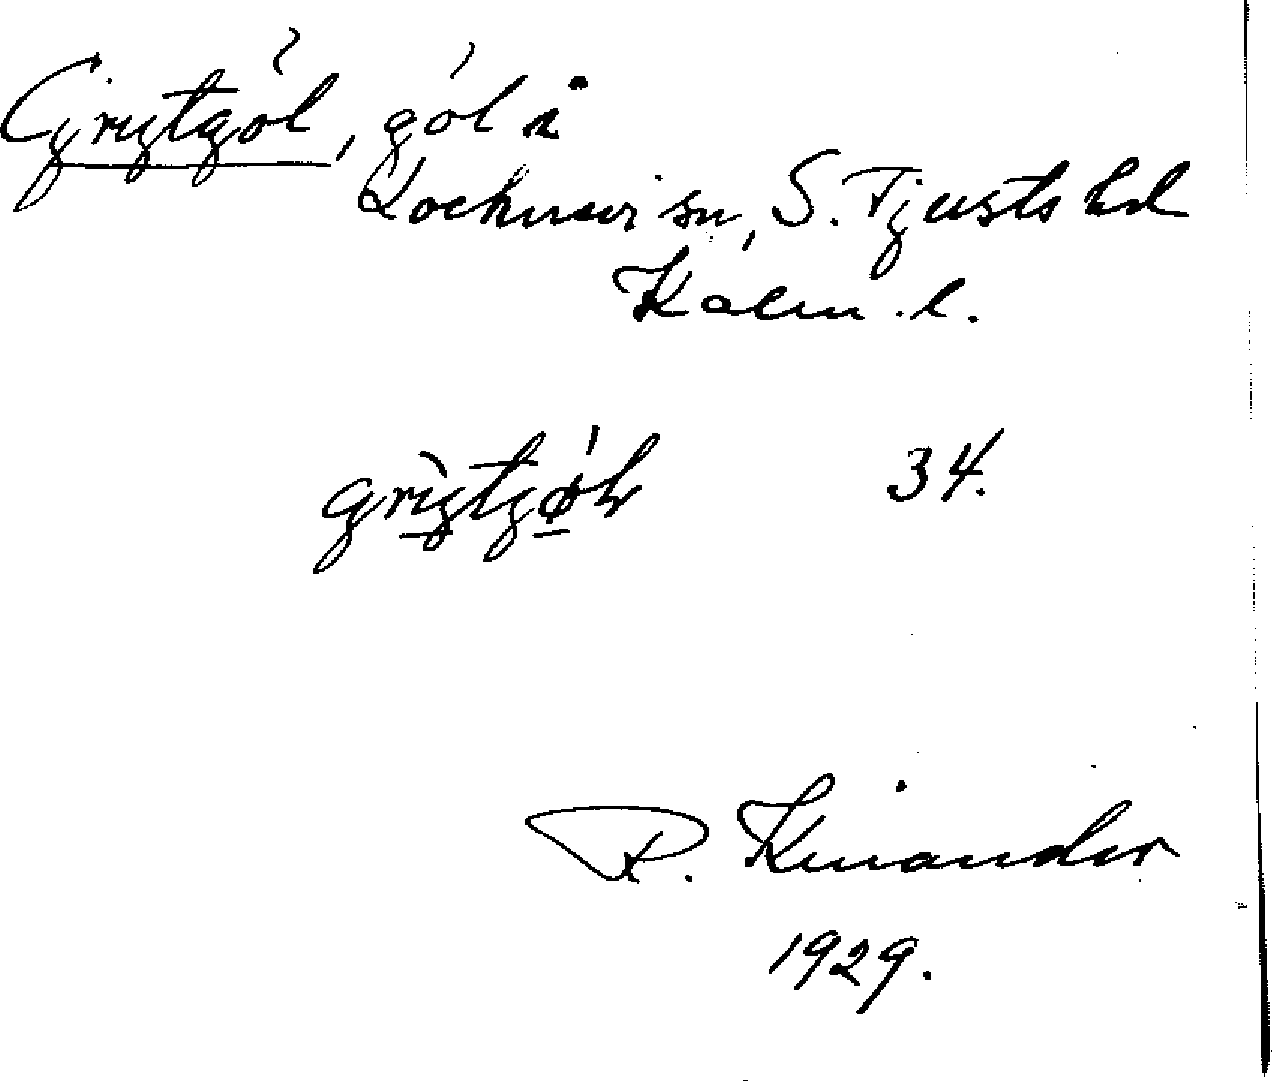 Grytgöl, göl i
Locknevi sn, S. Tjusts hd
Kalm. l.
34.
R. Kinander
1929.